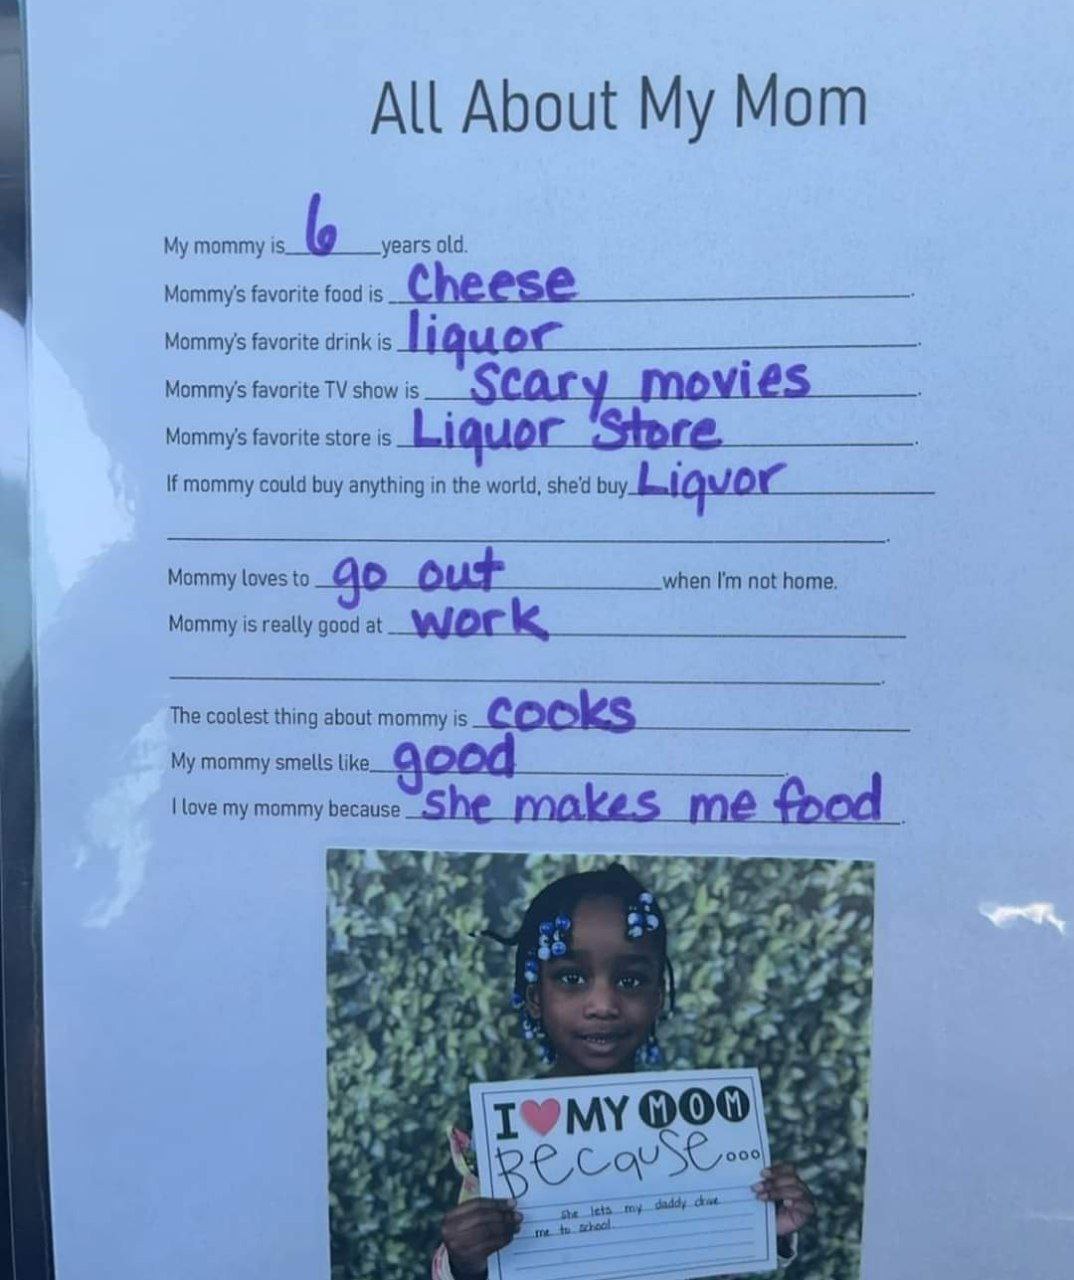 All About My Mom
My mommy is 6 years old.
Mommy's favorite food is Cheese.
Mommy's favorite drink is liquor.
Mommy's favorite TV show is Scary movies.
Mommy's favorite store is Liquor Store.
If mommy could buy anything in the world, she'd buy Liquor
.
Mommy loves to go out when I'm not home.
Mommy is really good at work
.
The coolest thing about mommy is cooks
My mommy smells like good.
I love my mommy because she makes me food.
I ❤ MY MOM
Because...ooo
She lets my daddy drive
me to school.